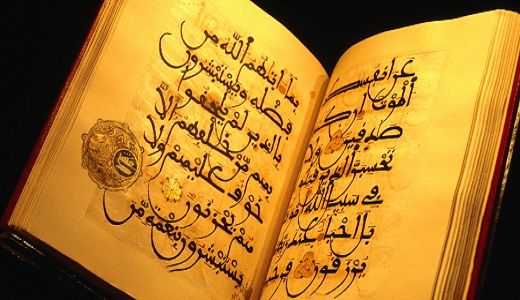 عن
الموت ان
صدقين ولا
تحسبن الذين
في سبيل الله
بل احياء عند
يرزقون فرحين
بما اتيهم الله من
فضله ويستبشرون
بالذين لم يلحقوا
بهم من خلفهم الا
خوف عليهم ولا
هم يحزنون
يستبشرون بنعمة من